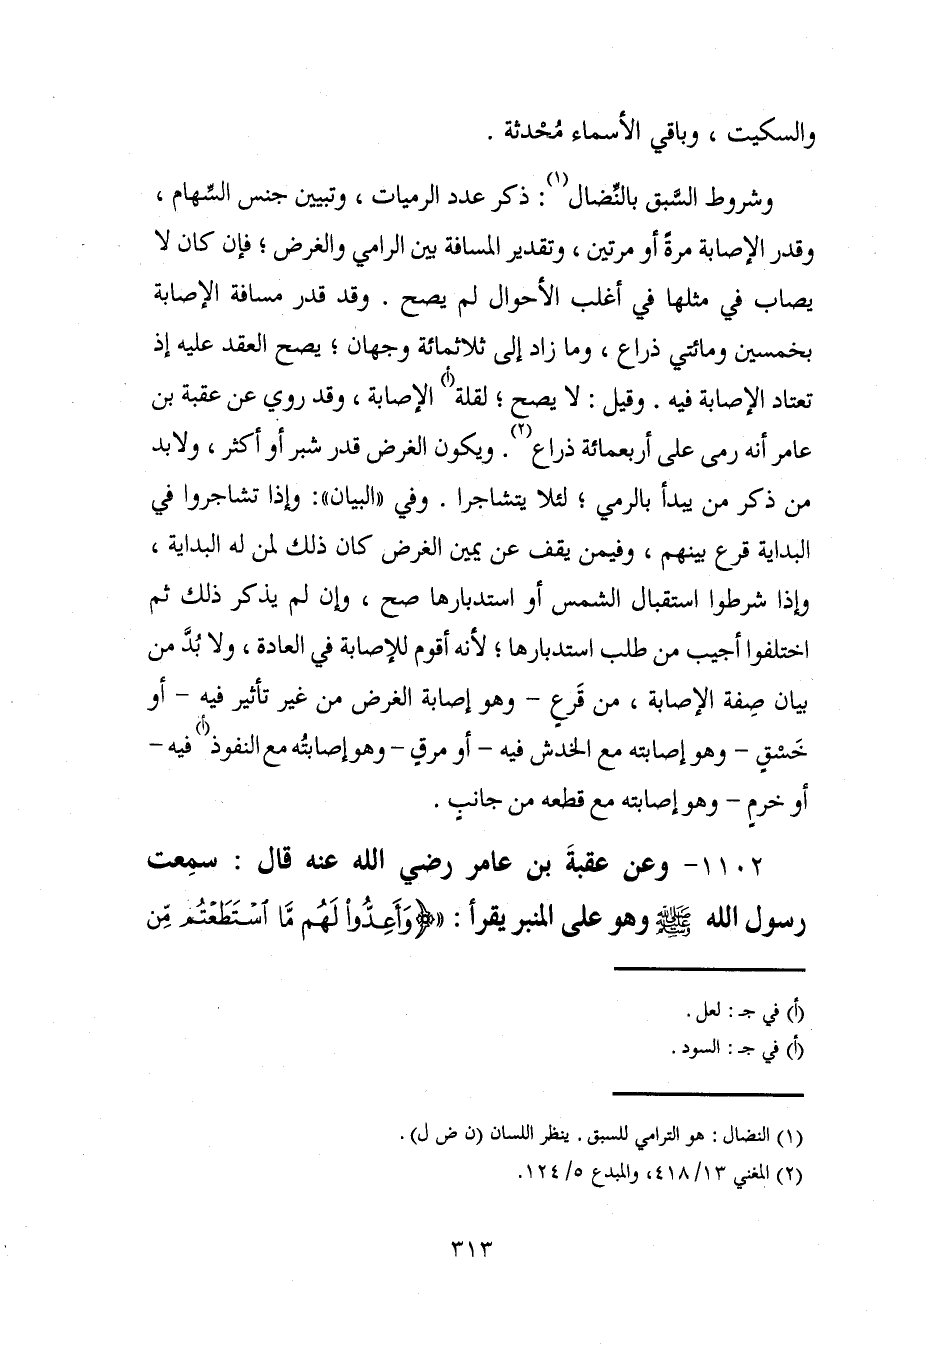 والسكيت ، وباقي الأسماء مُحْدثة .
وشروط السَّبق بالنِّضال(١): ذكر عدد الرميات ، وتبيين جنس السِّهام ،
وقدر الإصابة مرةً أو مرتين ، وتقدير المسافة بين الرامي والغرض ؛ فإن كان لا
يصاب في مثلها في أغلب الأحوال لم يصح . وقد قدر مسافة الإصابة
بخمسين ومائتي ذراع ، وما زاد إلى ثلاثمائة وجهان ؛ يصح العقد عليه إذ
تعتاد الإصابة فيه . وقيل : لا يصح ؛ لقلة(أ) الإصابة ، وقد روي عن عقبة بن
عامر أنه رمى على أربعمائة ذراع(٢) . ويكون الغرض قدر شبر أو أكثر ، ولابد
من ذكر من يبدأ بالرمي ؛ لئلا يتشاجرا . وفي «البيان»: وإذا تشاجروا في
البداية قرع بينهم ، وفيمن يقف عن يمين الغرض كان ذلك لمن له البداية ،
وإذا شرطوا استقبال الشمس أو استدبارها صح ، وإن لم يذكر ذلك ثم
اختلفوا أجيب من طلب استدبارها ؛ لأنه أقوم للإصابة في العادة ، ولا بُدَّ من
بيان صِفة الإصابة ، من قَرعٍ – وهو إصابة الغرض من غير تأثير فيه – أو
خَسْقٍ – وهو إصابته مع الخدش فيه – أو مرقٍ – وهو إصابتُه مع النفوذ(أ) فيه –
أو خرمٍ – وهو إصابته مع قطعه من جانبٍ .
١١٠٢– وعن عقبةَ بن عامر رضي الله عنه قال : سمِعت
رسول الله ﷺ وهو على المنبر يقرأ : «﴿وَأَعِدُّواْ لَهُم مَّا ٱسْتَطَعْتُم مِّن
(أ) في جـ : لعل .
(أ) في جـ : السود .
(١) النضال : هو الترامي للسبق . ينظر اللسان (ن ض ل) .
(٢) المغني ١٣/ ٤١٨، والمبدع ٥/ ١٢٤.
٣١٣